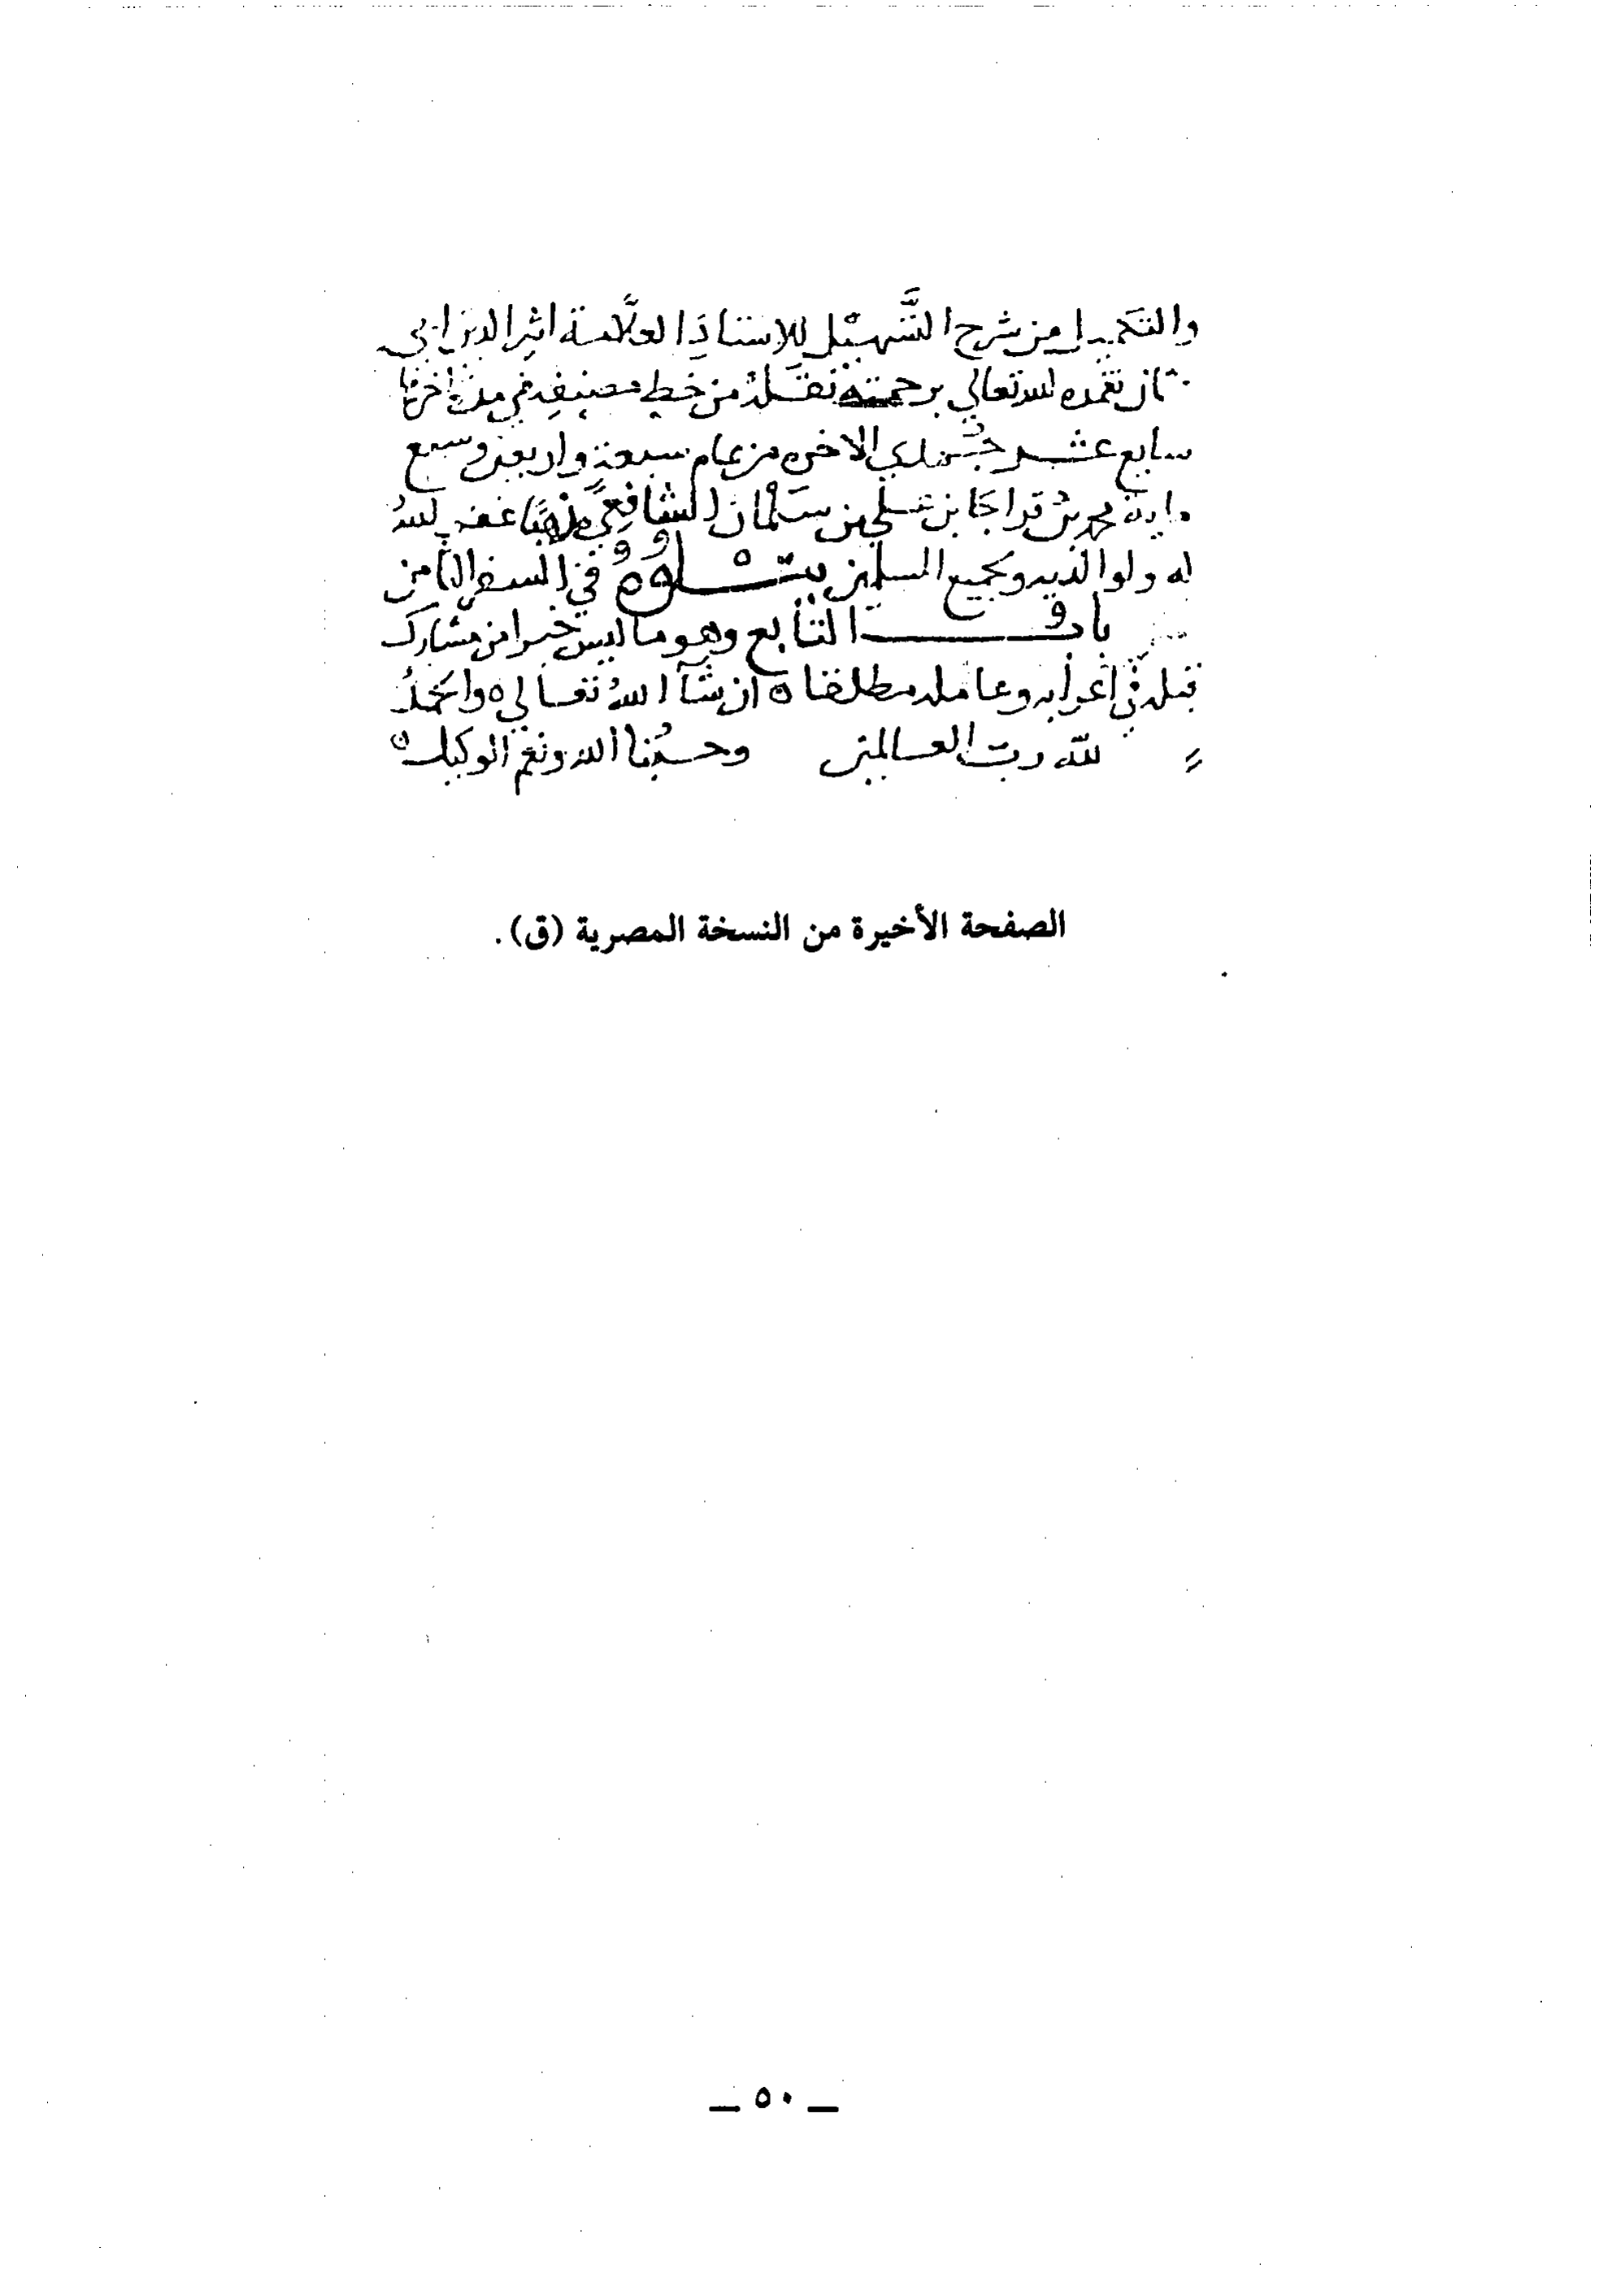 والتكميل من شرح التَّسهيْل للاستاذِ العلَّامة اثير الدين ابي
حيان تغمده الله تعالي برحمته نقلهُ من خط مصنفه في مدة اخرها
سابع عشر جُمادي الاخره من عام سبعة واربعين وسبع
ماية محمد بن قراجَا بن علي بن سَلْمان الشافعي مذهبًا غفر اللهُ
له ولوالديه ولجميع المسلمين يتْلوهُ في السفر الثامن
بابُ التَّابع وهو ما ليس خبرا من مشارك
قبله في اعرابه وعامله مطلقا ه ان شآ اللهُ تعالي ه والحَمدُ
لله رب العالمين وحسبُنا الله ونعم الوكيل ه
الصفحة الأخيرة من النسخة المصرية (ق).
ـ ٥٠ ـ